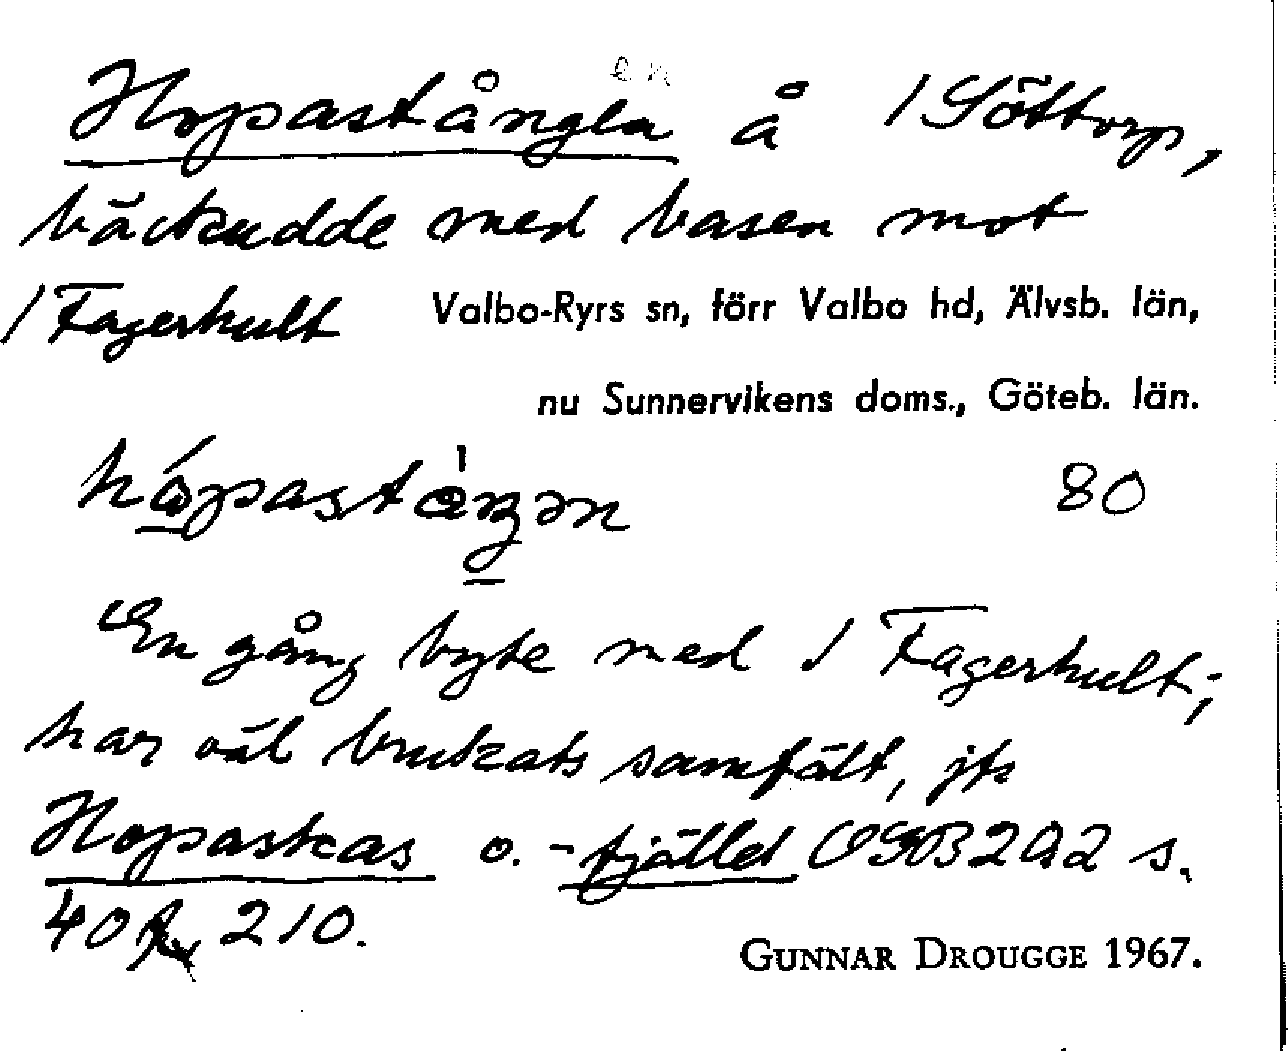 en
Hopastångla å 1 Göttorp,
bäckudde med basen mot
1 Fagerhult Valbo-Ryrs sn, förr Valbo hd, Älvsb. län,
nu Sunnervikens doms., Göteb. län.
80
En gång byte med 1 Fagerhult;
har väl brukats samfällt, jfr
Hopaskas o. -fjället OGB 20:2 s.
40 210.
GUNNAR DROUGGE 1967.